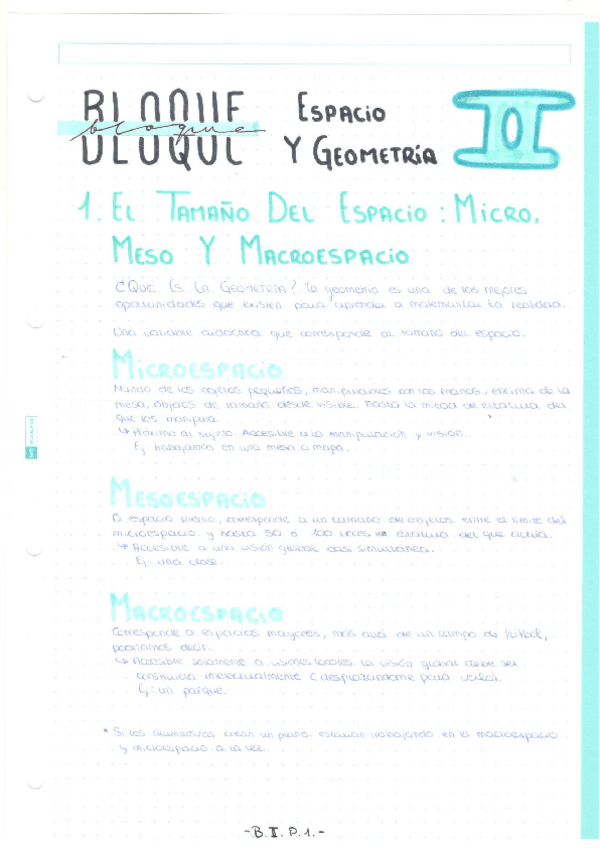 BLOQUE
bloque
Espacio
Y Geometría
II
1. El Tamaño Del Espacio: Micro,
Meso Y Macroespacio
¿Que Es La Geometría? La geometría es una de las mejores
oportunidades que existen para aprender a matematizar la realidad.
Una variable didáctica que corresponde al tamaño del espacio.
Microespacio
Mundo de los objetos pequeños, manipulables con las manos, encima de la
mesa, objetos de tamaño desde visible hasta la mitad de estatura del
que los manipula.
↳ Próximo al sujeto. Accesible a la manipulación y visión.
Ej: trabajando en una mesa o mapa.
Mesoespacio
O espacio medio, corresponde a un tamaño de objetos entre el límite del
microespacio y hasta 50 ó 100 veces la estatura del que actúa.
↳ Accesible a una visión global casi simultánea.
Ej: una clase.
Macroespacio
Corresponde a espacios mayores, más allá de un campo de fútbol,
podríamos decir.
↳ Accesible solamente a visiones locales. La visión global debe ser
construida intelectualmente (desplazándome para verla).
Ej: un parque.
* Si los alumnos/as crean un plano, estarían trabajando en el macroespacio
y microespacio a la vez.
-B.II.P.1.-